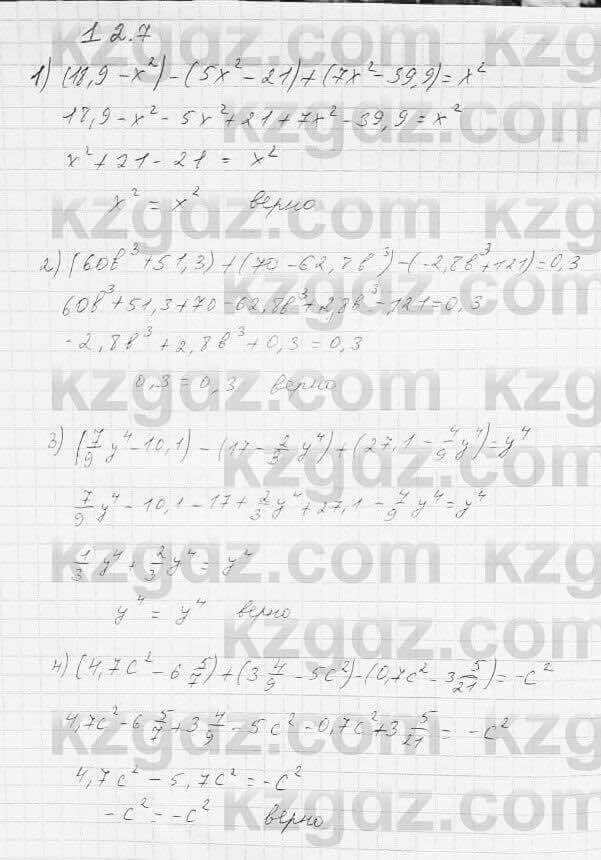 12.7
1) (18,9 - x²) - (5x² - 21) + (7x² - 39,9) = x²
18,9 - x² - 5x² + 21 + 7x² - 39,9 = x²
x² + 21 - 21 = x²
x² = x² верно
2) (60b³ + 51,3) + (70 - 62,8b³) - (-2,8b³ + 121) = 0,3
60b³ + 51,3 + 70 - 62,8b³ + 2,8b³ - 121 = 0,3
-2,8b³ + 2,8b³ + 0,3 = 0,3
0,3 = 0,3 верно
3) (7/9 y⁴ - 10,1) - (17 - 2/3 y⁴) + (27,1 - 4/9 y⁴) = y⁴
7/9 y⁴ - 10,1 - 17 + 2/3 y⁴ + 27,1 - 4/9 y⁴ = y⁴
1/3 y⁴ + 2/3 y⁴ = y⁴
y⁴ = y⁴ верно
4) (4,7c² - 6 5/7) + (3 4/9 - 5c²) - (0,7c² - 3 5/21) = -c²
4,7c² - 6 5/7 + 3 4/9 - 5c² - 0,7c² + 3 5/21 = -c²
4,7c² - 5,7c² = -c²
-c² = -c² верно
kzgdz.com
kzgdz.com
kzgdz.com
kzgdz.com
kzgdz.com
kzgdz.com
kzgdz.com
kzgdz.com
kzgdz.com